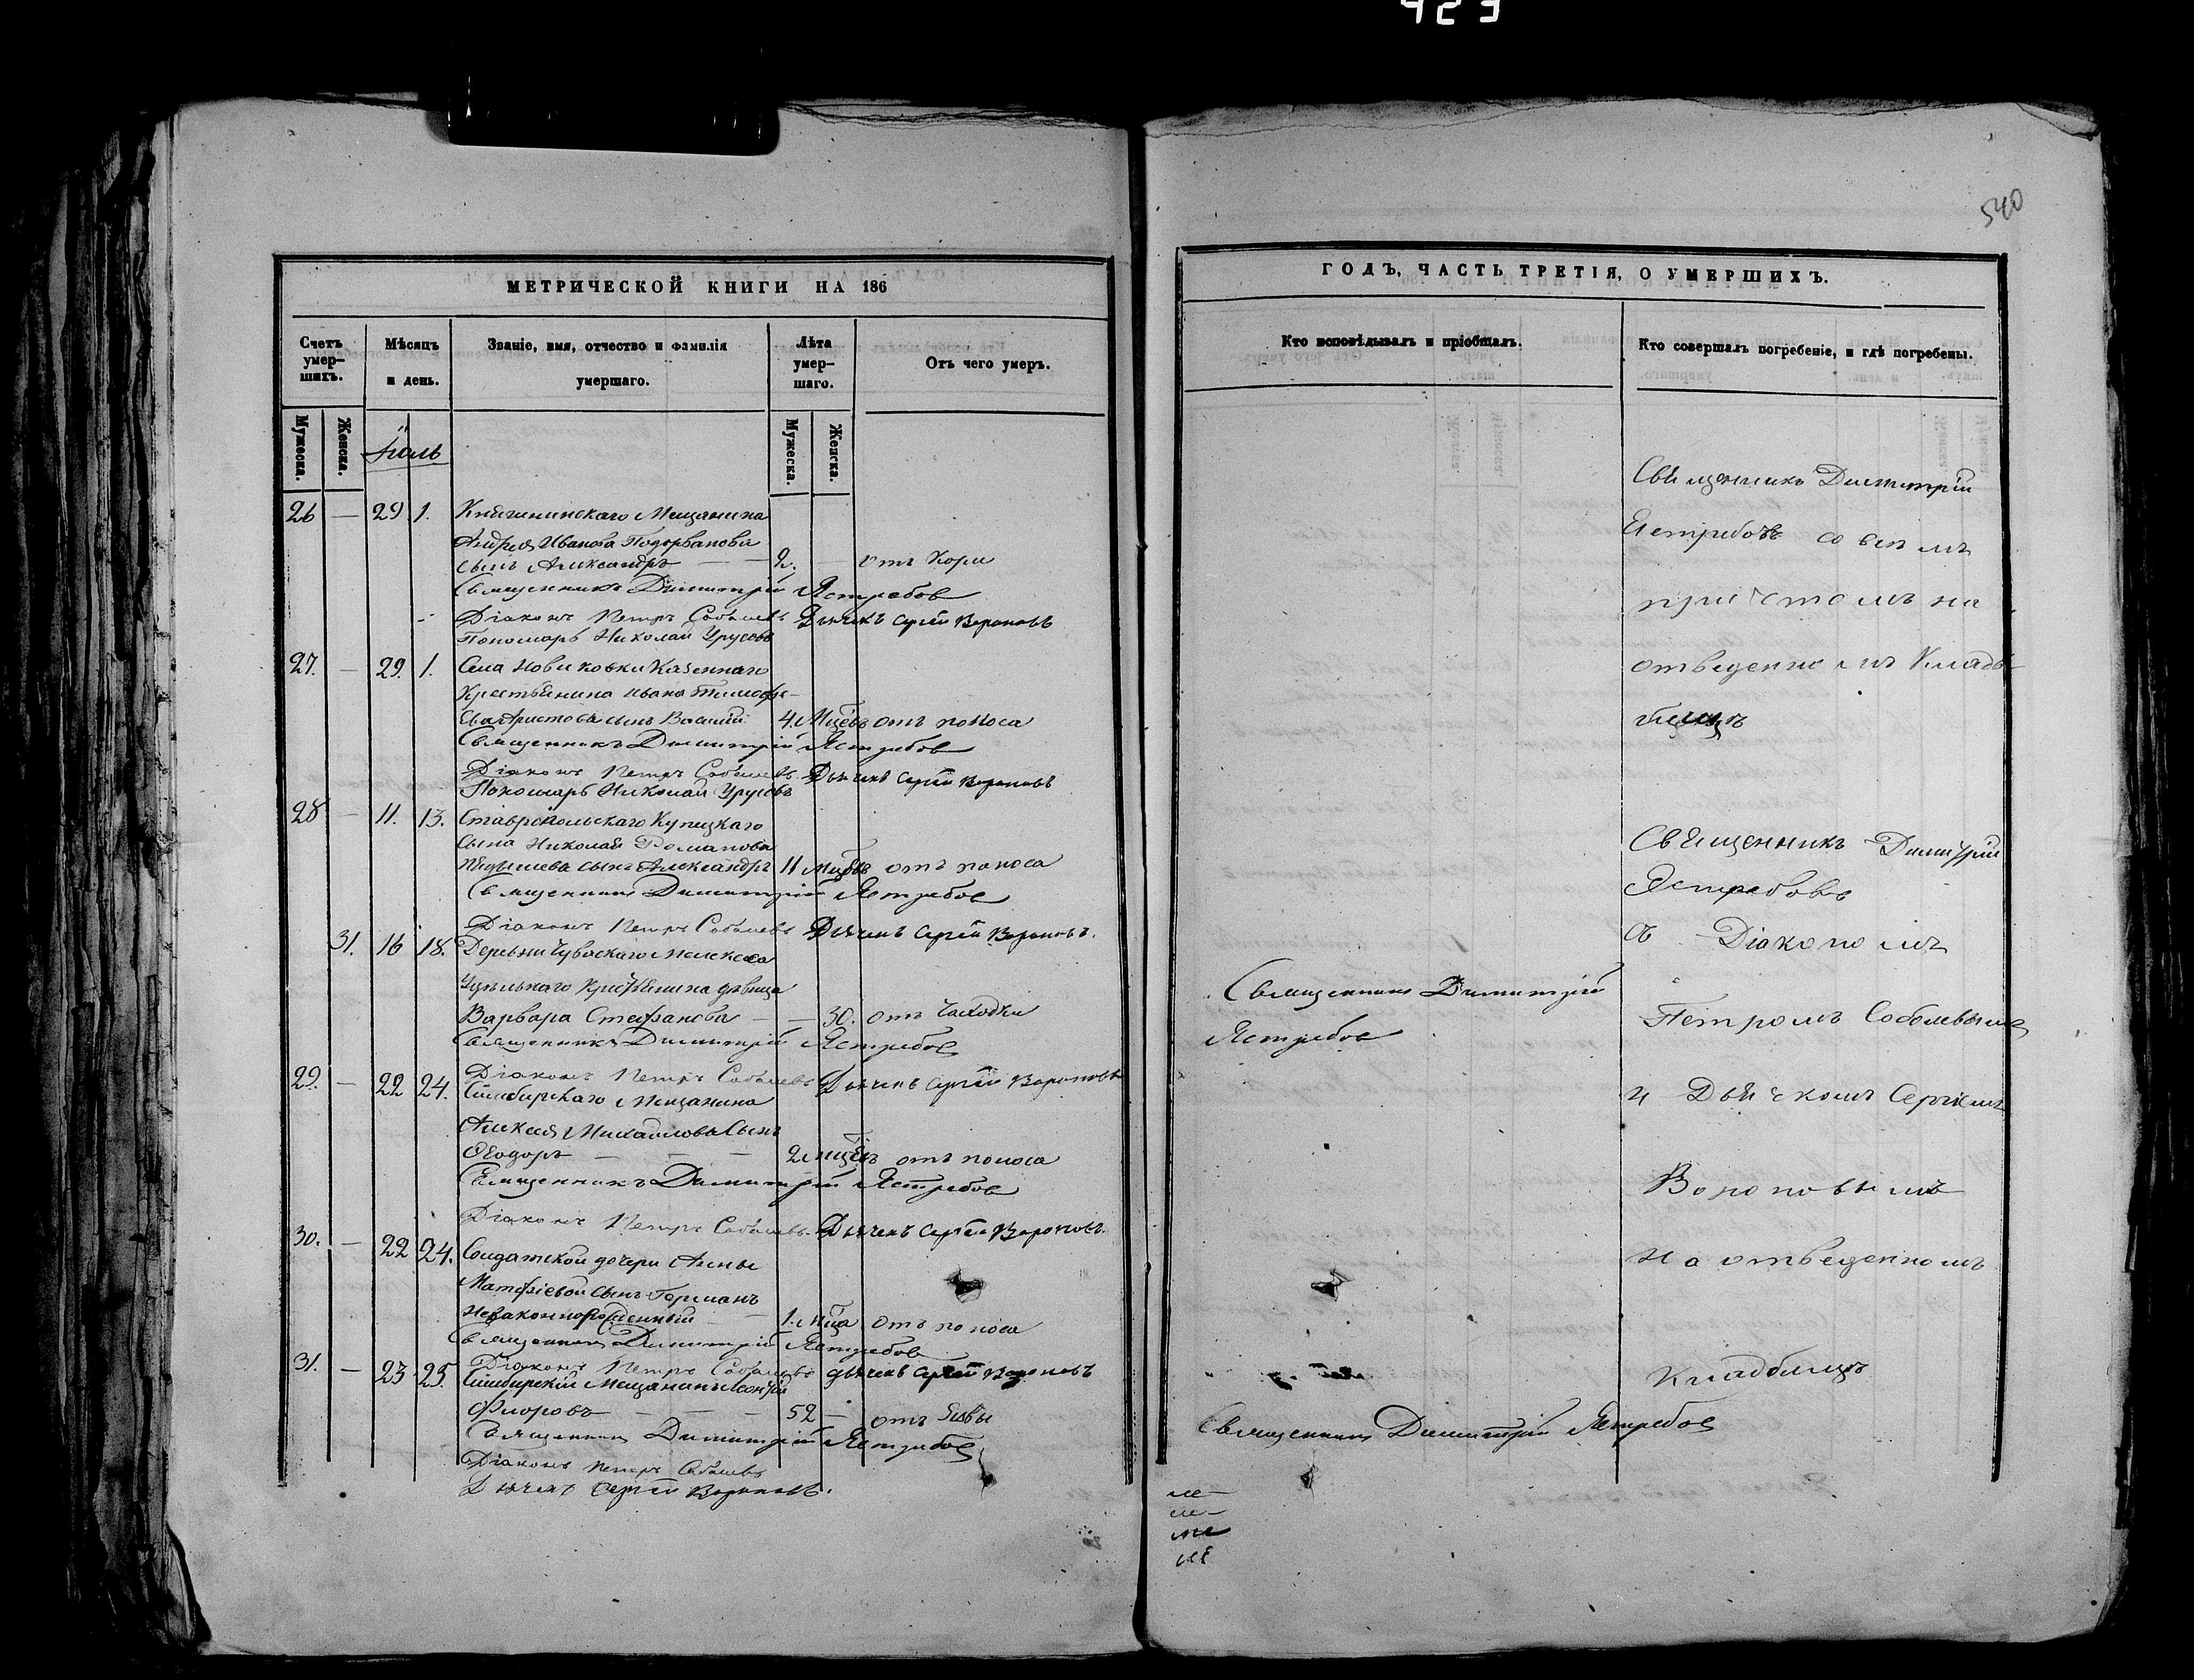 423
540
МЕТРИЧЕСКОЙ КНИГИ НА 186
Счетъ умер-шихъ.
Мѣсяцъ и день.
Званіе, имя, отчество и фамилія умершаго.
Лѣта умер-шаго.
Отъ чего умеръ.
Мужеска. Женска.
Мужеска. Женска.
Іюль
26 — 29 1. Княгининскаго Мещанина
Андрея Иванова
сынъ Александръ — — 2. — отъ Кори
Священникъ Димитрій Ястребов
Діаконъ Петръ Соболевъ Дьячекъ Сергѣй Вороновъ
Пономарь Николай Урусовъ
27. — 29. 1. Села Новиковки Казеннаго
Крестьянина Ивана Тимофе-
ева Аристова сынъ Василій 4. М-цевъ отъ поноса
Священникъ Димитрій Ястребов
Діаконъ Петръ Соболевъ Дьячекъ Сергѣй Вороновъ
Пономарь Николай Урусовъ
28 — 11. 13. Ставропольскаго Купецкаго
Сына Николая Романова
сынъ Александръ 11 м-цевъ отъ поноса
Священникъ Димитрій Ястребов
Діаконъ Петръ Соболевъ Дьячекъ Сергѣй Вороновъ.
31. 16 18. Деревни Чуваскаго Мелекеса
Удѣльнаго Крестьянина дѣвица
Варвара Стефанова — — 30. отъ Чахотки
Священникъ Димитрій Ястребов
Діаконъ Петръ Соболевъ Дьячекъ Сергѣй Вороновъ
29. — 22 24. Симбирскаго Мещанина
Алексея Михайлова Сынъ
Ѳеодоръ — — — 2 м-цевъ отъ поноса
Священникъ Димитрій Ястребов
Діаконъ Петръ Соболевъ. Дьячекъ Сергѣй Вороновъ.
30. — 22 24. Солдатской дочери Анны
Матфіевой сынъ Германъ
Незаконнорожденный — 1. м-ца отъ поноса
Священникъ Димитрій Ястребов
Діаконъ Петръ Соболевъ дьячекъ Сергѣй Вороновъ
31. — 23 25. Симбирскій Мещанинъ
Флоровъ — — — 52 — отъ Язвы
Священникъ Димитрій Ястребов
Діаконъ Петръ Соболевъ
Дьячекъ Сергѣй Вороновъ.
ГОДЪ, ЧАСТЬ ТРЕТІЯ, О УМЕРШИХЪ.
Кто исповѣдывалъ и пріобщалъ.
Кто совершалъ погребеніе, и гдѣ погребены.
Священникъ Димитрій
Ястребовъ со всѣмъ
причтомъ на
отведенномъ Клад-
бищѣ
Священникъ Димитрій
Ястребовъ
съ Діакономъ
Петромъ Соболевымъ
и Дьячкомъ Сергіемъ
Вороновымъ
на отведенномъ
кладбищѣ
Священникъ Димитрій
Ястребов
Священникъ Димитрій Ястребов